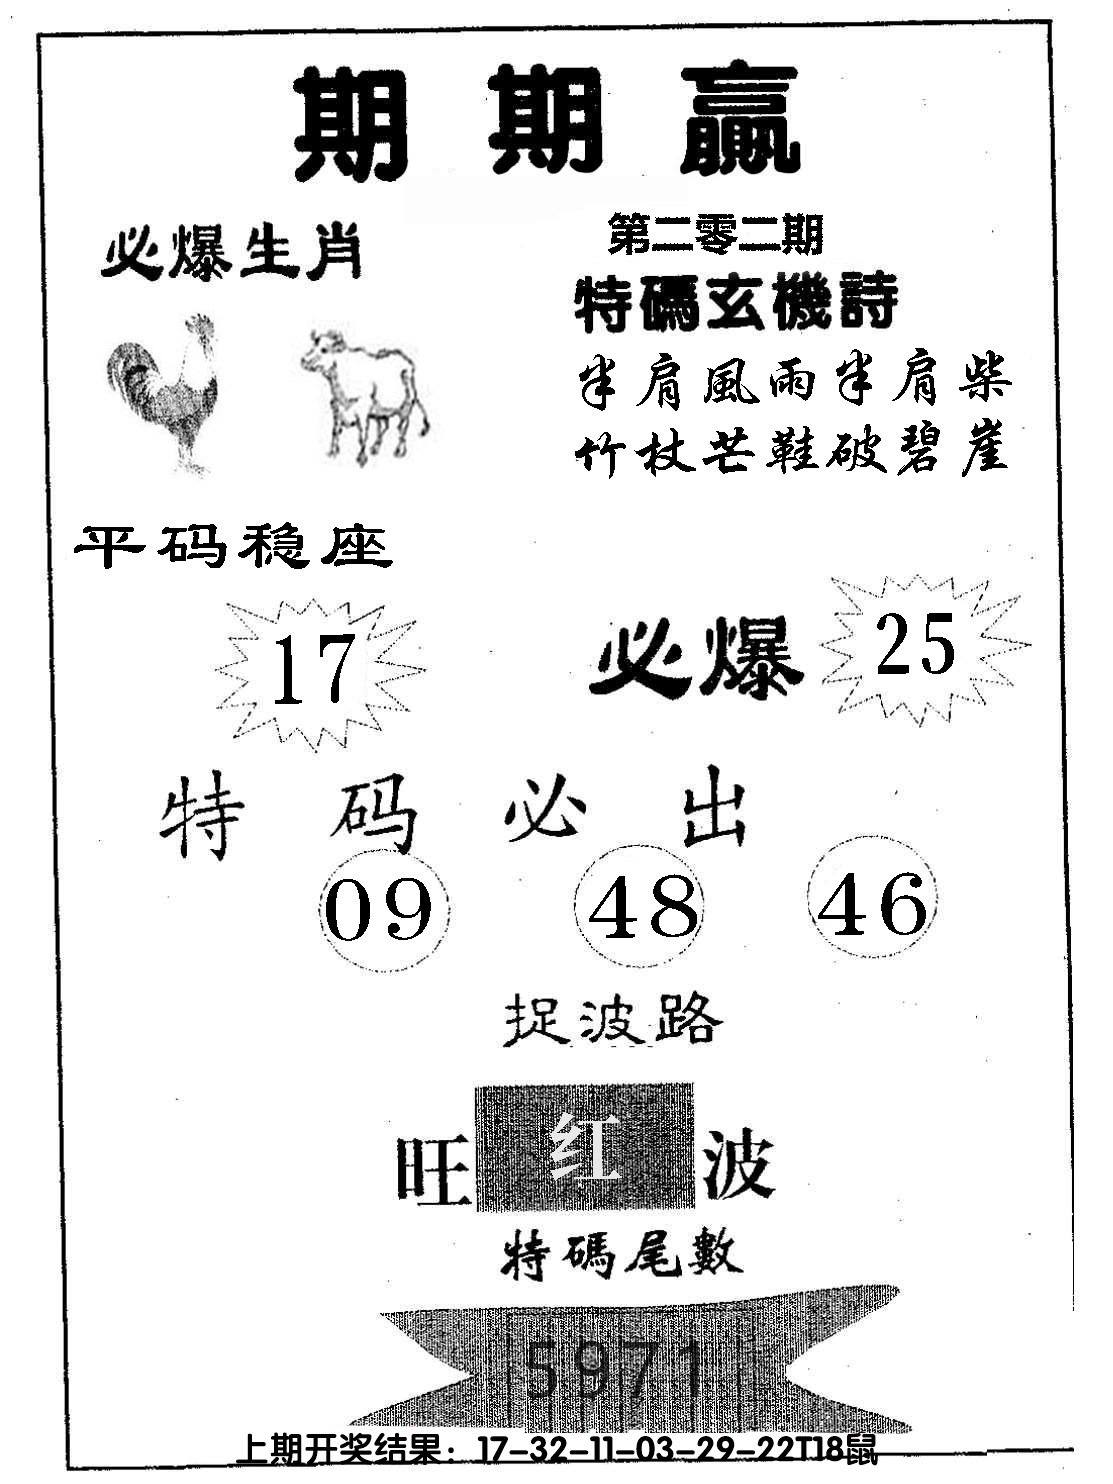 期期赢
必爆生肖
第二零二期
特碼玄機詩
半肩風雨半肩柴
竹杖芒鞋破碧崖
平码稳座
17
必爆 25
特码必出
09 48 46
捉波路
旺红波
特碼尾數
5971
上期开奖结果：17-32-11-03-29-22T18鼠